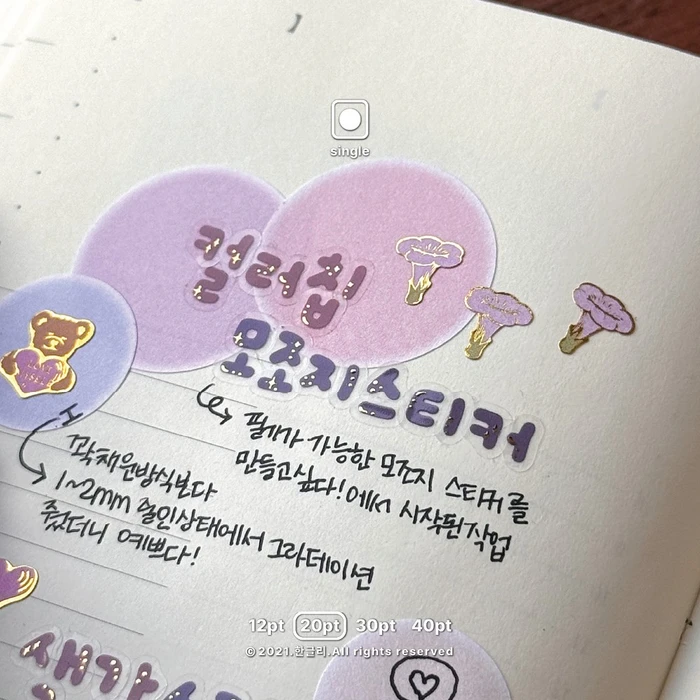 single
컬러칩
모조지스티커
필기가 가능한 모조지 스티커를
만들고싶다!에서 시작된작업
꽉채운방식보다
1~2mm 줄인상태에서 그라데이션
줬더니 예쁘다!
12pt 20pt 30pt 40pt
©2021.한글리.All rights reserved